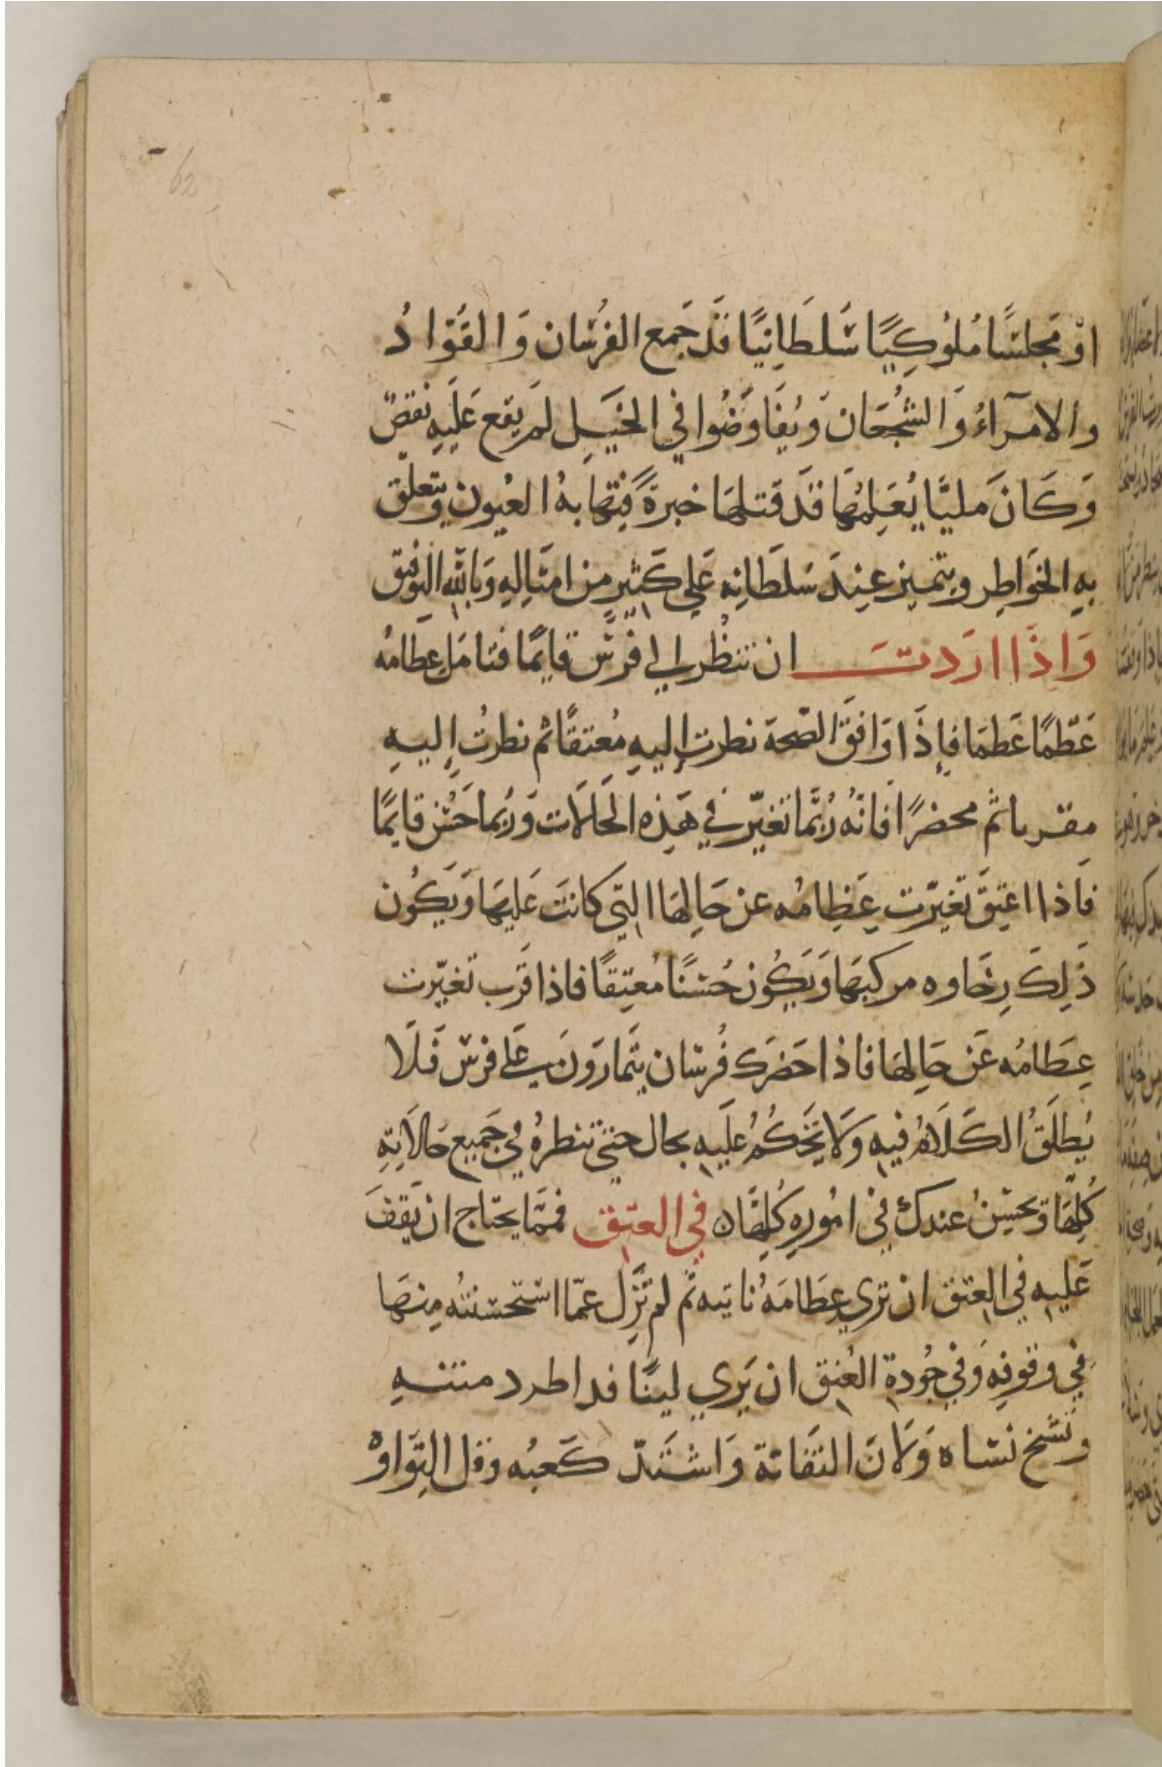 62
اوّ مَجلسًا مُلوُكِيًا سُلطَانِيًا قَد جَمع الفرُسَان وَالقَوّادُ
والامرآءُ وَالشُجعَان وَيُفَاوَضُوا في الخيَل لمَ يقع عَليَهِ نقصٌ
وَكَانَ مَليًا يُعَلِمُهَا قد قتلهَا خبرَةً فيتهابهُ العُيون ويتعلق
بهِ الخوَاطِر ويتميز عِندَ سُلطَانِه عَلى كثيرٍ من امثالِهِ وَبالله التوفيق
وَاِذَا ارَدت ان تنظُر الى فرَسٍ قايمًا فتامَل عِظامُه
عَظمًا عَظمَا فإِذَا وَافَق الصّحة نظرت إِليهِ مُعتقًا ثم نظرتُ إِليهِ
مقربا ثم محضرًا فانّه رُبَّما تغيّر في هَذِه الحَالاَت وَرُبما حَسُن قايمًا
فَاذا اعتِقَ تغيّرت عِظِامُه عن حَالِهَا التي كانتَ عَليهَا وَيَكُون
ذَلِكَ رِخَاوه مركبهَا وَيَكُون حُسْنًا مُعتِقًا فاذا قرَب تغيّرت
عِظَامُه عَن حَالِهَا فاذا حَضَرَك فُرسَان يتَمارَون على فرس فَلَا
يُطلَقُ الكَلَامُ فيهِ وَلَا يَحْكُمُ عَليَهِ بحال حتى تنظرهُ في جَميع حَالاَتِهِ
كُلِهَا وَيحسَنُ عندكَ في امُورِهِ كُلِهَا ه في العتِق فممَّا يحتاج ان يَقفَ
عَليهِ في العتق ان ترى عِظَامَهُ نابتِه ثم لم تزَل عمّا استحسَنتُه مِنهَا
في وقوفِهِ وَفي جُودة العُنق ان يَرى لينًا قد اطرد متنهِ
وَنَشَج نسَاه وَلَانَ الثَفَاتة وَاشتَدّ كَعبُه وَقل التِوَاوْ